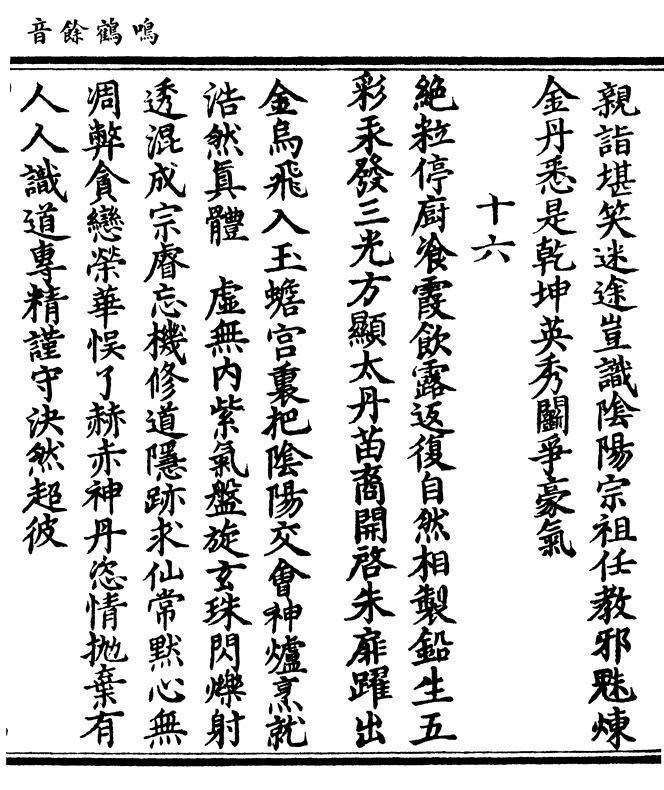 鳴鶴餘音
親詣堪笑迷途豈識陰陽宗祖任教邪魁煉
金丹悉是乾坤英秀鬭爭豪氣
十六
絕粒停厨飡霞飲露返復自然相製鉛生五
彩汞發三光方顯太丹苗裔開啓朱扉躍出
金烏飛入玉蟾宫裏把陰陽交會神爐烹就
浩然眞體　虛無内紫氣盤旋玄珠閃爍射
透混成宗睿忘機修道隱跡求仙常默心無
凋弊貪戀榮華悮了赫赤神丹恣情抛棄有
人人識道專精謹守決然超彼